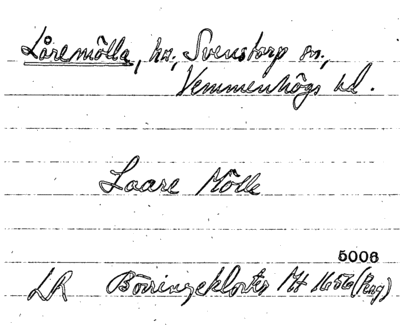 Låremölla, hn., Svenstorp sn.,
Vemmenhögs hd.
Laare Mölle
5006
LR Börringekloster Mt 1656 (Reg)